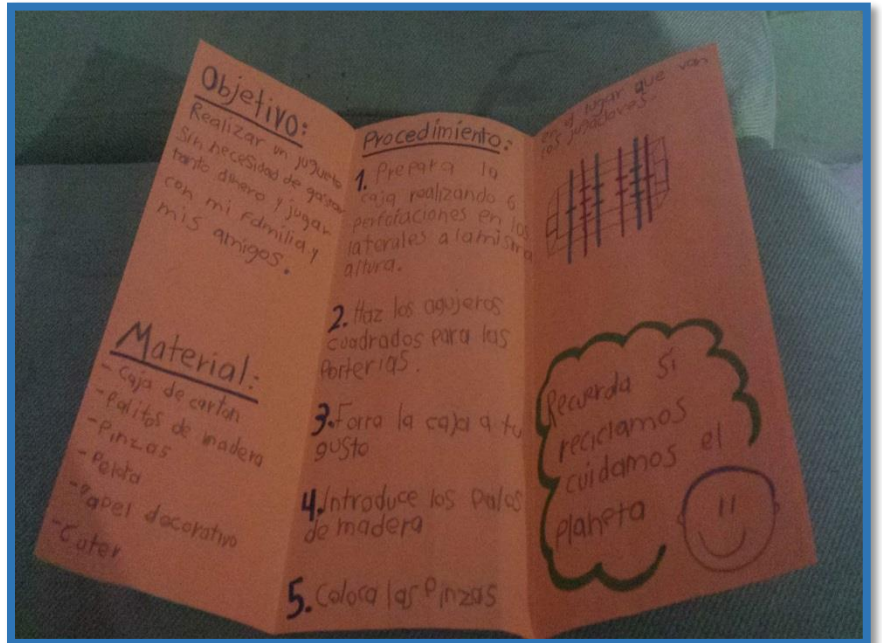 Objetivo:
Realizar un juguete
sin necesidad de gastar
tanto dinero y jugar
con mi familia y
mis amigos.
Material:
- Caja de carton
- Palitos de madera
- Pinzas
- Pelota
- Papel decorativo
- Cuter
Procedimiento:
1. Prepara la
caja realizando 6
perforaciones en los
laterales a la misma
altura.
2. Haz los agujeros
cuadrados para las
Porterias.
3. Forra la caja a tu
gusto
4. Introduce los palos
de madera
5. Coloca las Pinzas
en el lugar que van
los jugadores.
Recuerda si
reciclamos
cuidamos el
planeta